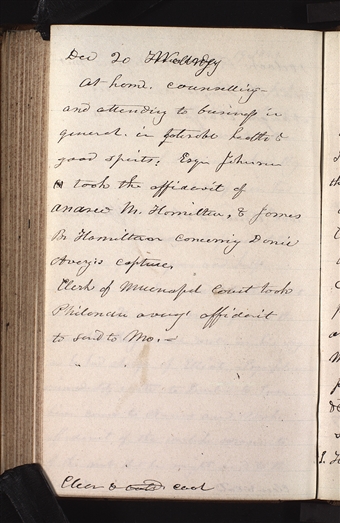 Dec 20 Wednesday
At home. counselling
and attending to business in
general. in tolerable health &
good spirits; Esqr Johnson
took the affidavit of
andrew M. Hamilton, & James
B. Hamilton concerning Daniel
Avery's capture
Clerk of Municipal Court took
Philander averys affidavit
to send to Mo. -
Clear & cold cool